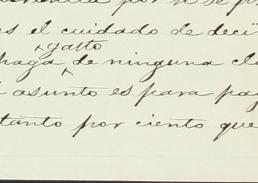 por
es el cuidado de deci
gasto
haga de ninguna cl
asunto es para pag
tanto por ciento que